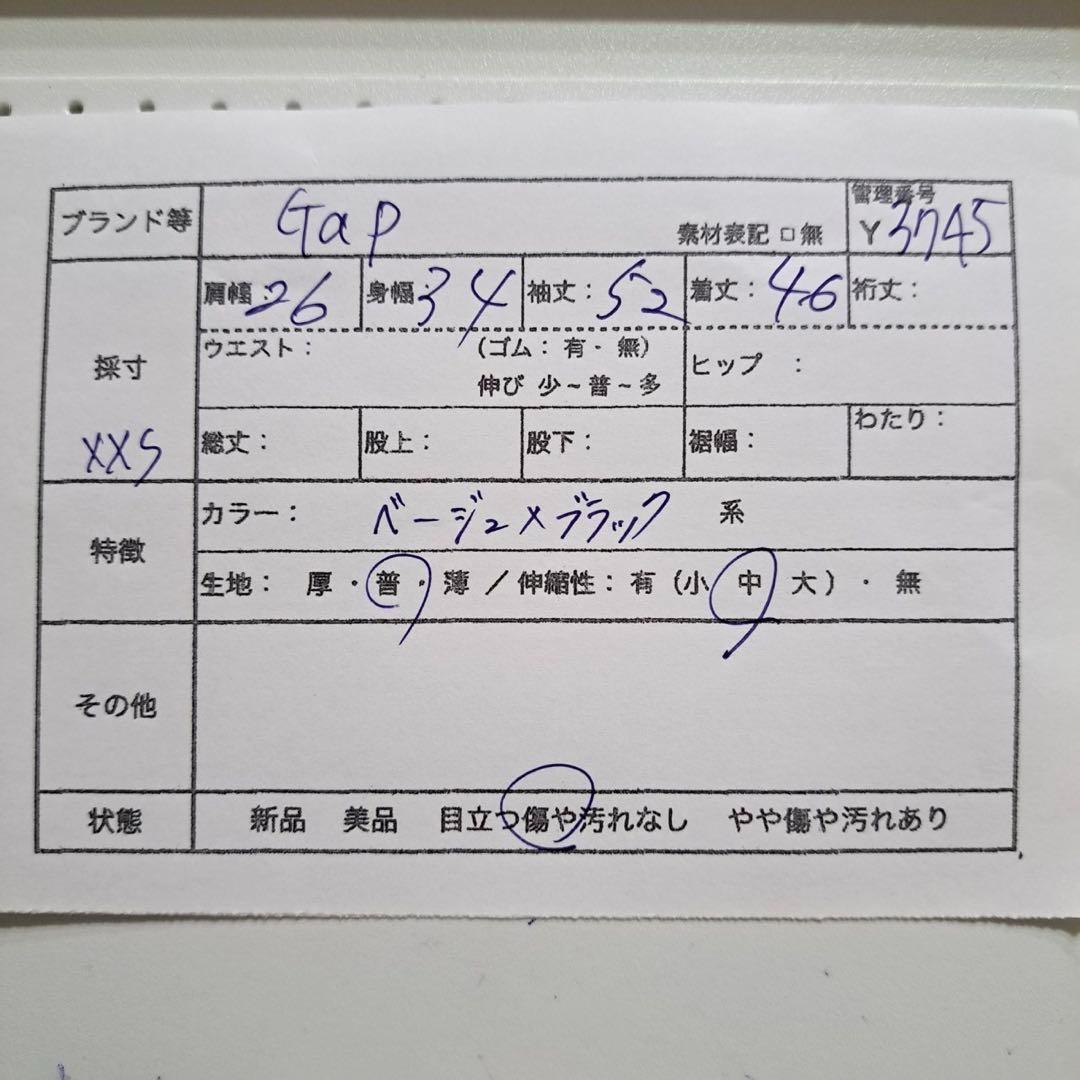 ブランド等 Gap 素材表記 □ 無 管理番号 Y 3745
肩幅：26 身幅：34 袖丈：52 着丈：46 裄丈：
採寸 XXS
ウエスト： （ゴム：有・無） ヒップ ：
伸び 少～普～多
総丈： 股上： 股下： 裾幅： わたり：
特徴
カラー： ベージュ×ブラック 系
生地： 厚・普・薄 ／ 伸縮性：有（小 中 大）・無
その他
状態 新品 美品 目立つ傷や汚れなし やや傷や汚れあり